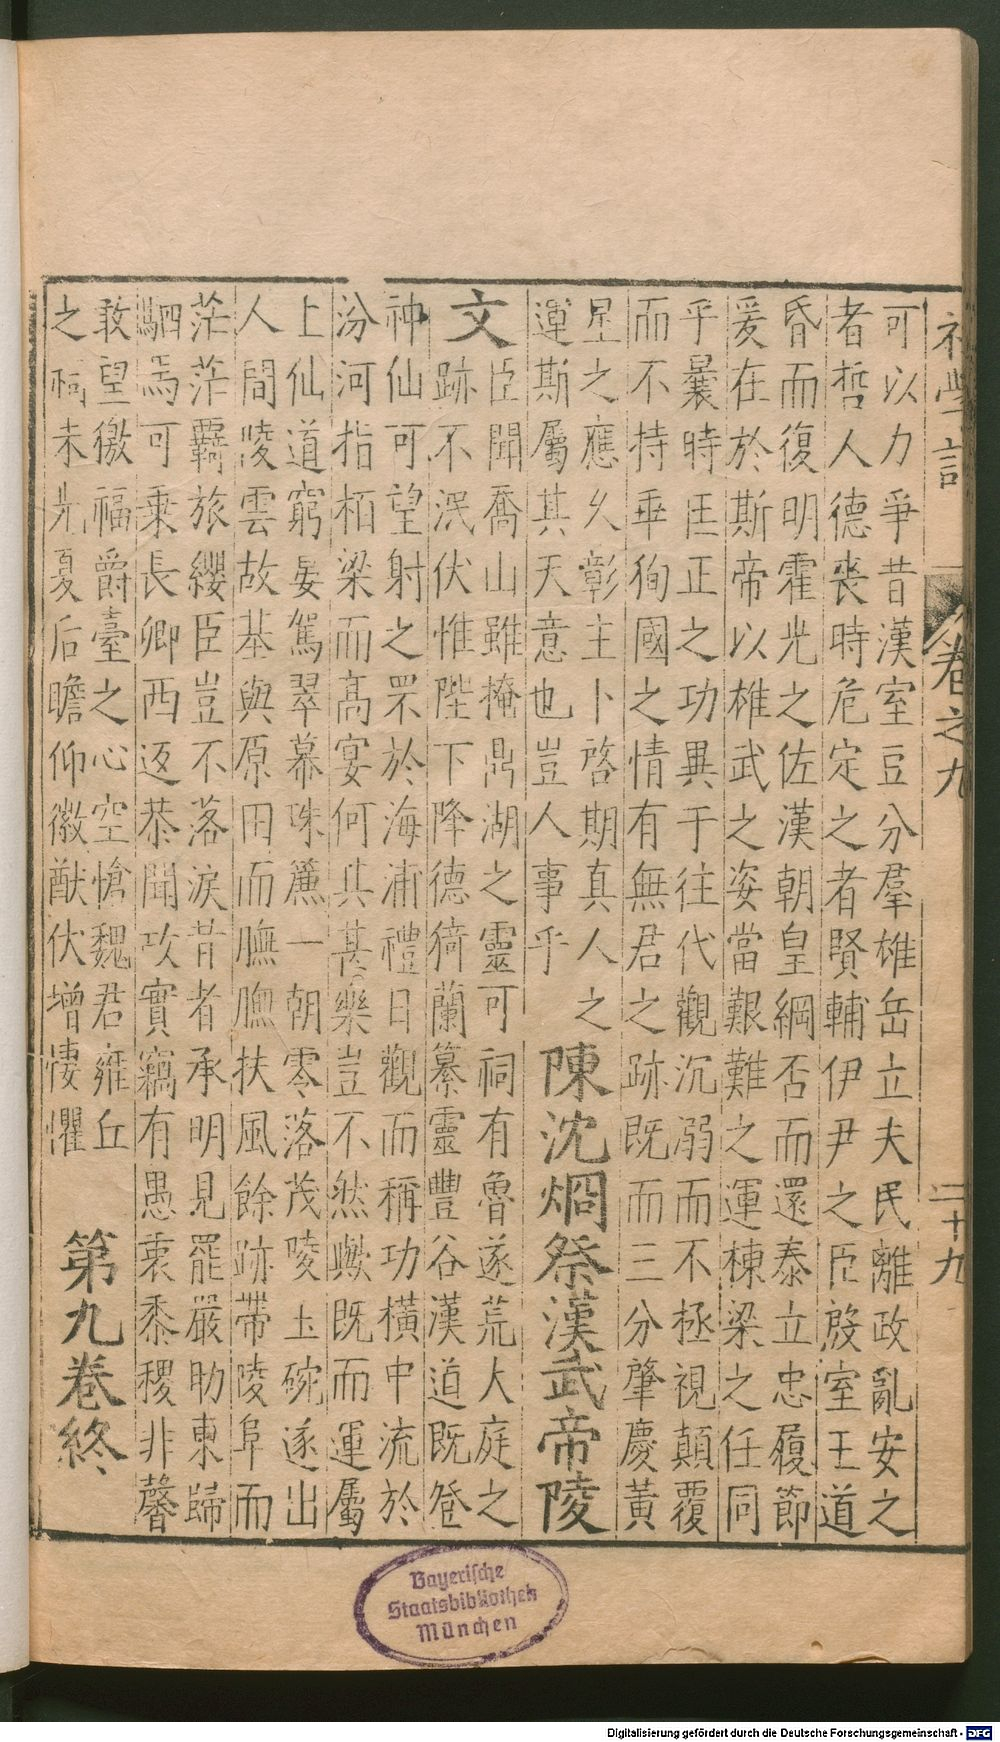 初學記 卷之九 二十九
可以力爭昔漢室豆分羣雄岳立夫民離政亂安之
者哲人德喪時危定之者賢輔伊尹之臣殷室王道
昏而復明霍光之佐漢朝皇綱否而還泰立忠履節
爰在於斯帝以雄武之姿當艱難之運棟梁之任同
乎曩時匡正之功異于往代觀沉溺而不拯視顛覆
而不持乖殉國之情有無君之跡既而三分肇慶黃
星之應久彰主卜啓期真人之
運斯屬其天意也豈人事乎
陳沈烱祭漢武帝陵
文
臣聞喬山雖掩鼎湖之靈可祠有魯遂荒大庭之
跡不泯伏惟陛下降德猗蘭纂靈豐谷漢道既登
神仙可望射之罘於海浦禮日觀而稱功橫中流於
汾河指栢梁而高宴何其甚樂豈不然歟既而運屬
上仙道窮晏駕翠幕珠簾一朝零落茂陵玉碗遂出
人間陵雲故基與原田而膴膴扶風餘跡帶陵阜而
茫茫覊旅纓臣豈不落淚昔者承明見罷嚴助東歸
駟馬可乘長卿西返恭聞故實竊有愚衷黍稷非馨
敢望徼福爵臺之心空愴魏君雍丘
之祠未光夏后瞻仰徽猷伏增悽懼
第九卷終
Bayerische
Staatsbibliothek
München
Digitalisierung gefördert durch die Deutsche Forschungsgemeinschaft - DFG